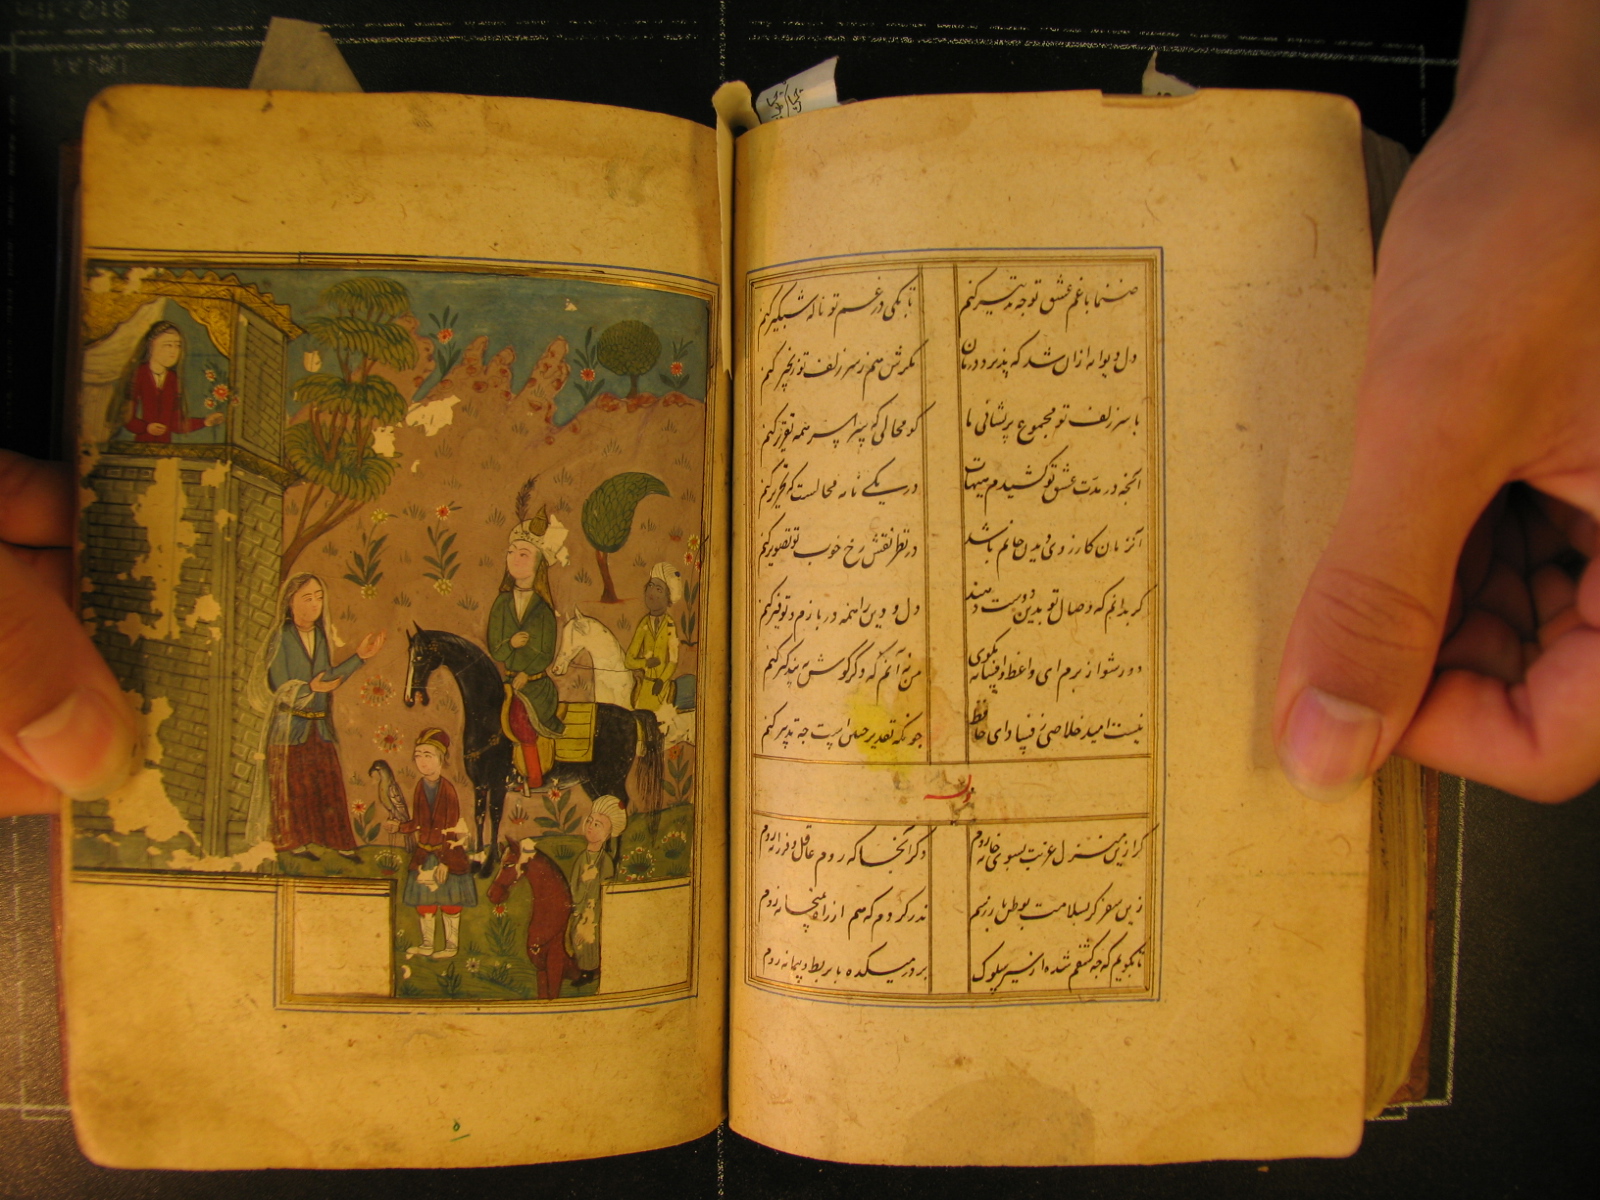 صنما با غم عشق تو چه تدبیر کنم
تا بکی در غم تو ناله شبکیر کنم
دل دیوانه ازان شد که پذیرد درمان
مکرش هم ز سر زلف تو زنجیر کنم
با سر زلف تو مجموع پریشانی ما
کو مجالی که سراسر همه تقریر کنم
آنچه در مدت عشق تو کشیدم هیهات
در یکی نامه محالست که تحریر کنم
آنزمان کارزوی دیدن جانم باشد
در نظر نقش رخ خوب تو تصویر کنم
کر بدانم که وصال تو بدین دست دهد
دل و دین را همه در بازم و توفیر کنم
دور شو از برم ای واعظ و افسانه مکوی
من نه آنم که دکر کوش بتذکیر کنم
نیست امید خلاصی ز فساد ای حافظ
چونکه تقدیر چنین است چه تدبیر کنم
وله
کر ازین منزل غربت بسوی خانه روم
دکر آنجا که روم عاقل و فرزانه روم
زین سفر کر بسلامت بوطن باز رسم
نذر کردم که هم از راه بمیخانه روم
تا بکویم که چه کشفم شد ازین سیر و سلوک
بر در میکده با بربط و پیمانه روم
۵